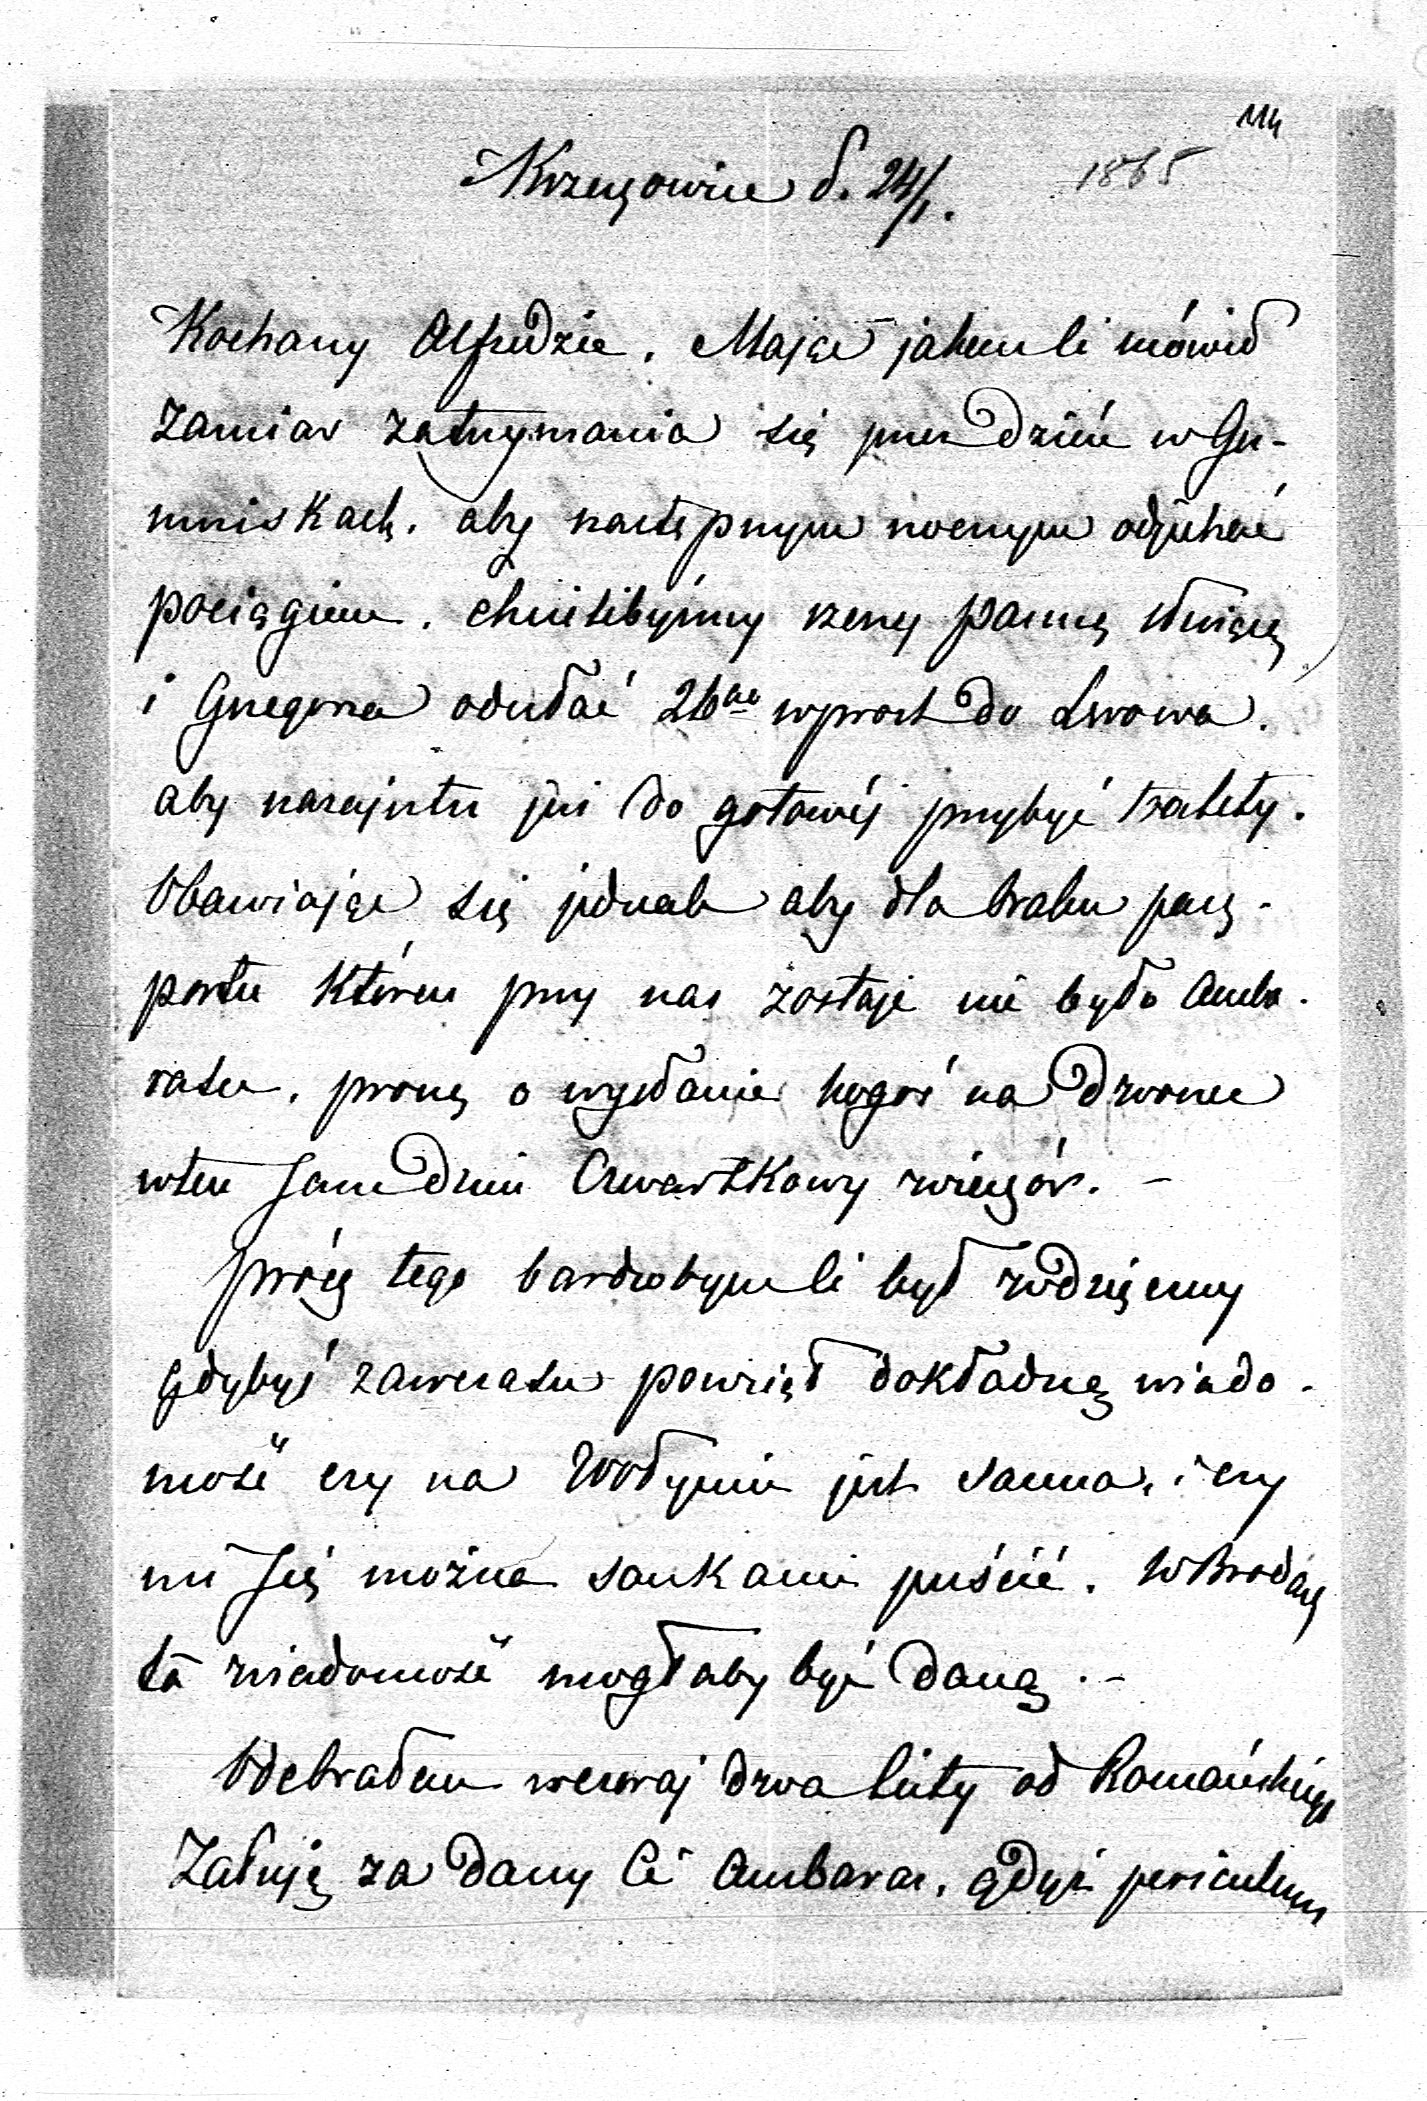 114
Krzeszowice d. 24/1. 1865
Kochany Alfredzie. Mając jakem Ci mówił
zamiar zatrzymania się przez dzień w Gu-
mniskach. aby następnym nocnym odjechać
pociągiem. chcielibyśmy rzeczy pannę służącę
i Grzegorza odesłać 26go wprost do Lwowa.
aby nazajutrz już do gotowéj przybyć toalety.
Obawiając się jednak aby dla braku pasz-
portu któren przy nas zostaje nie było Amba-
rasu. proszę o wysłanie kogoś na Dworzec
w ten sam dzień Czwartkowy wieczór. -
prócz tego bardzobym Ci był wdzięczny
gdybyś zawczasu powziął dokładną wiado-
mość czy na Wołyniu jest sanna, i czy
nią się można sankami puścić. W Brodach
ta wiadomość mogłaby być daną. -
Odebrałem wczoraj dwa listy od Romańskiego
Żałuję za dany Ci Ambaras, gdyż periculum